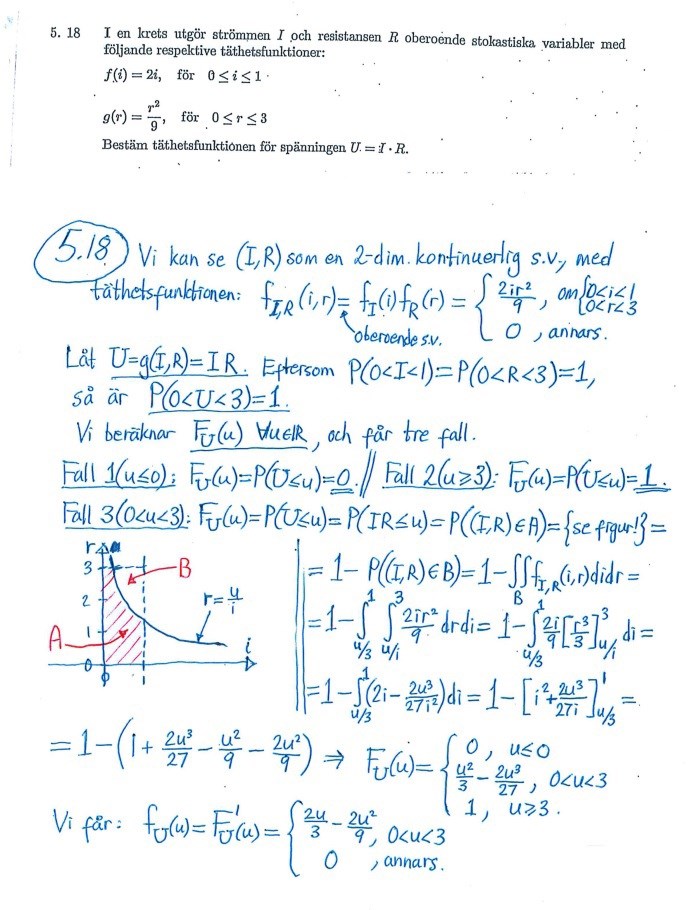 5. 18 I en krets utgör strömmen I och resistansen R oberoende stokastiska variabler med
följande respektive täthetsfunktioner:
f(i) = 2i, för 0 ≤ i ≤ 1
g(r) = r²/9, för 0 ≤ r ≤ 3
Bestäm täthetsfunktionen för spänningen U = I · R.
5.18 Vi kan se (I,R) som en 2-dim. kontinuerlig s.v., med
täthetsfunktionen: f_{I,R}(i,r) = f_I(i) f_R(r) = { 2ir²/9, om { 0<i<1 0<r<3
0, annars.
oberoende s.v.
Låt U=g(I,R)=IR. Eftersom P(0<I<1)=P(0<R<3)=1,
så är P(0<U<3)=1.
Vi beräknar F_U(u) ∀u∈R, och får tre fall.
Fall 1(u≤0): F_U(u)=P(U≤u)=0. // Fall 2(u≥3): F_U(u)=P(U≤u)=1.
Fall 3(0<u<3): F_U(u)=P(U≤u)=P(IR≤u)=P((I,R)∈A)={se figur!}=
r
3
2
1
0
B
A
r=u/i
i
= 1 - P((I,R)∈B) = 1 - ∬_B f_{I,R}(i,r)didr =
= 1 - ∫_{u/3}^{1} ∫_{u/i}^{3} 2ir²/9 drdi = 1 - ∫_{u/3}^{1} 2i/9 [r³/3]_{u/i}^{3} di =
= 1 - ∫_{u/3}^{1} (2i - 2u³/27i²)di = 1 - [i² + 2u³/27i]_{u/3}^{1} =
= 1 - (1 + 2u³/27 - u²/9 - 2u²/9) ⇒ F_U(u) = { 0, u≤0
u²/3 - 2u³/27, 0<u<3
1, u≥3.
Vi får: f_U(u) = F_U'(u) = { 2u/3 - 2u²/9, 0<u<3
0, annars.